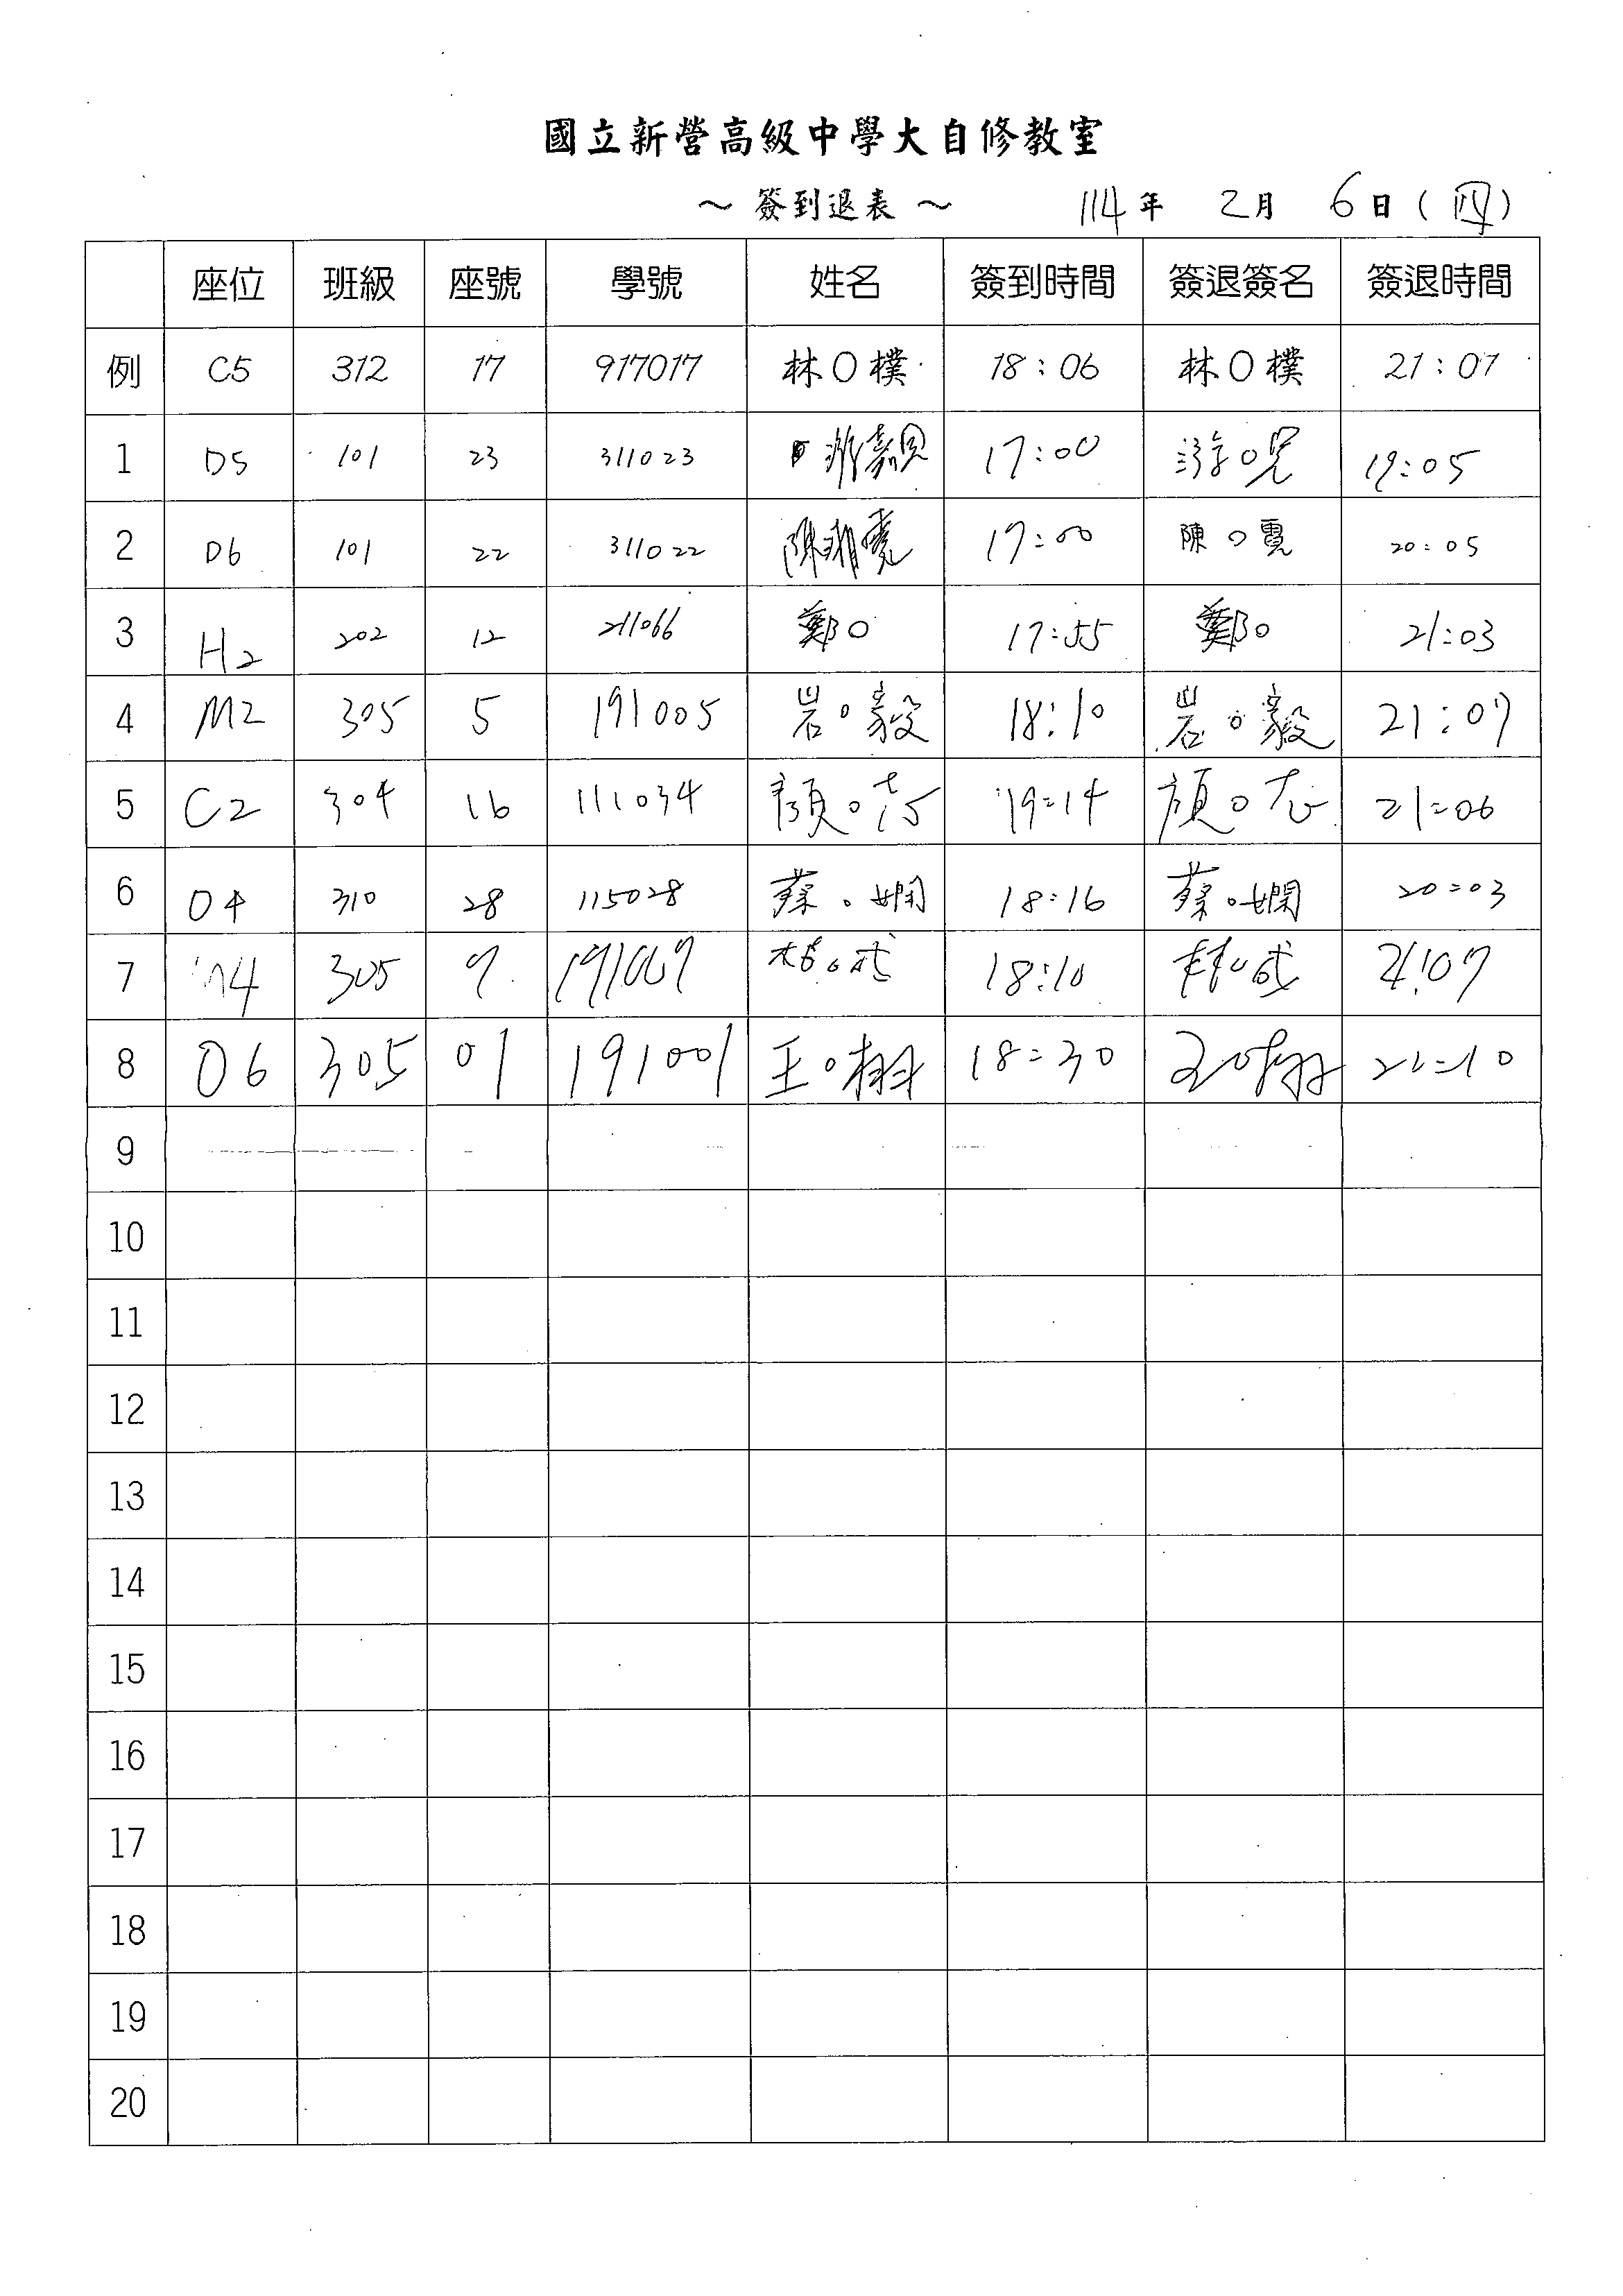 國立新營高級中學大自修教室
~ 簽到退表 ~ 114年 2月 6日(四)
座位 班級 座號 學號 姓名 簽到時間 簽退簽名 簽退時間
例 C5 312 17 917017 林O樸 18:06 林O樸 21:07
1 D5 101 23 311023 17:00 游O 19:05
2 D6 101 22 311022 陳 17:00 陳O霓 20:05
3 H2 202 12 211066 鄭O 17:55 鄭O 21:03
4 M2 305 5 191005 岩O毅 18:10 岩O毅 21:07
5 C2 304 16 111034 顏O 19:14 顏O 21:06
6 O4 310 28 115028 蔡O嫻 18:16 蔡O嫻 20:03
7 305 7 191007 18:10 21:07
8 O6 305 01 191001 王O栩 18:30 王O栩 21:10
9
10
11
12
13
14
15
16
17
18
19
20